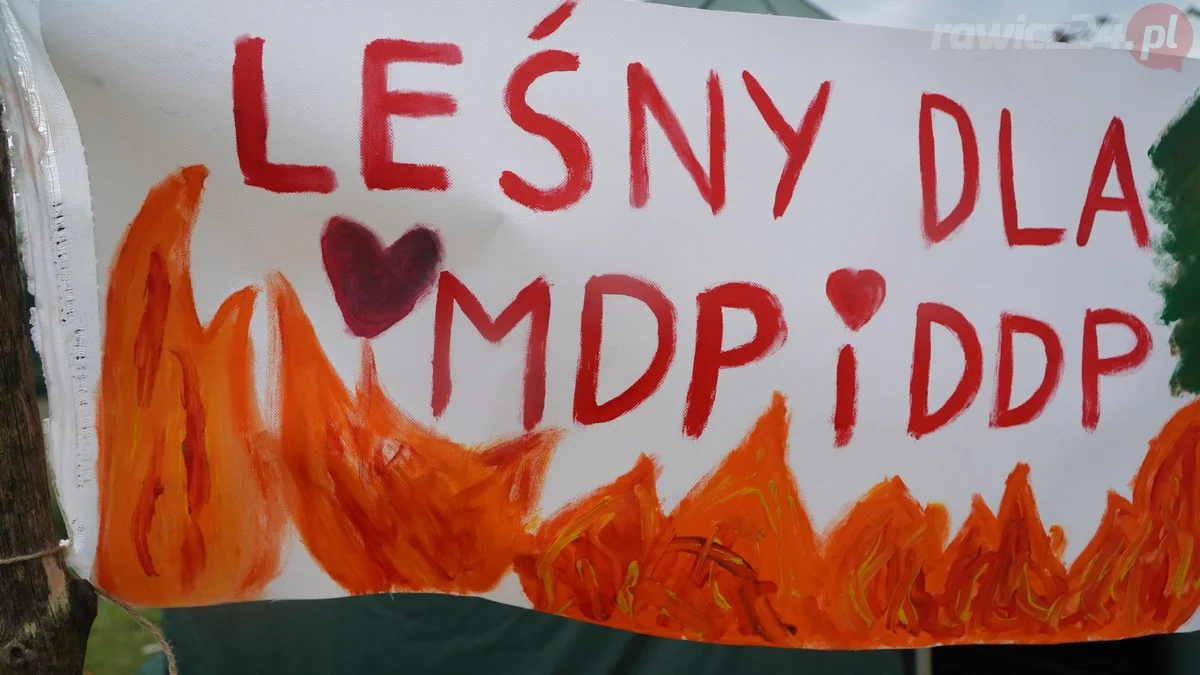 rawicz24.pl
LEŚNY DLA
MDP i DDP